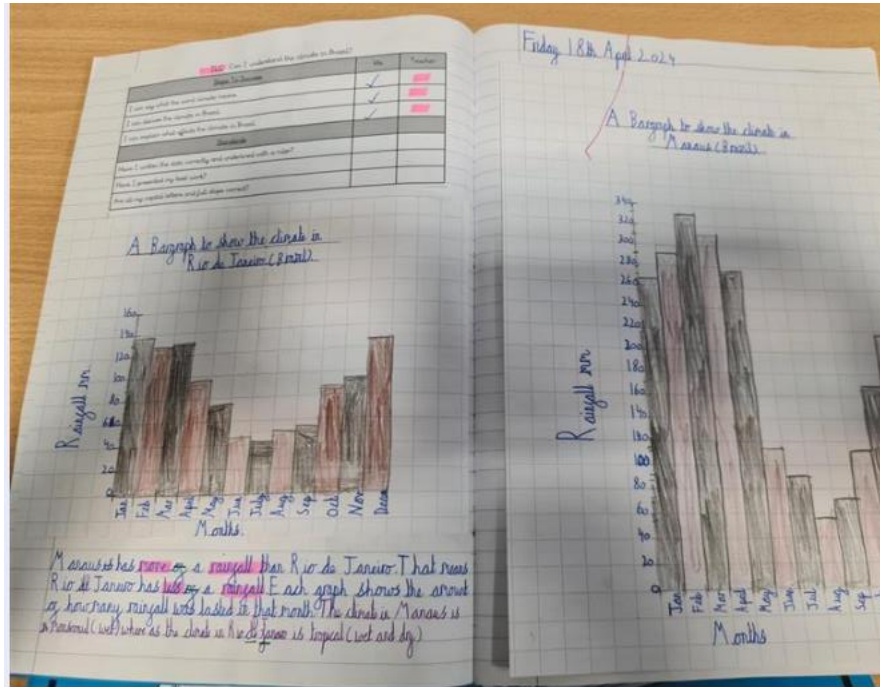 Can I understand the climate in Brazil?
Steps To Success
Me
Teacher
I can say what the word climate means.
I can describe the climate in Brazil.
I can explain what affects the climate in Brazil.
Standards
Have I written the date correctly and underlined with a ruler?
Have I presented my best work?
Are all my capital letters and full stops correct?
A Bargraph to show the climate in
Rio de Janeiro (Brazil).
160
140
120
100
80
60
40
20
0
Rainfall mm
Jan
Feb
Mar
April
May
Jun
July
Aug
Sep
Oct
Nov
Dec
Months.
has more a rainfall than Rio de Janeiro. That means
Rio de Janeiro has less a rainfall Each graph shows the amount
of how many rainfall was lasted in that month. The climate in Manaus is
(wet) where as the climate in Rio de is tropical (wet and dry)
Friday 18th April 2024
A Bargraph to show the climate in
Manaus (Brazil).
340
320
300
280
260
240
220
200
180
160
140
120
100
80
60
40
20
0
Rainfall mm
Jan
Feb
Mar
April
May
Jun
Jul
Aug
Sep
Months